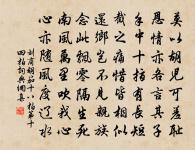 莫以胡兒可羞恥
恩情亦各言其子
手中十指有長短
截之痛惜皆相似
還鄉豈不見親族
念此飄零隔生死
南風萬里吹我心
心亦隨風度遼水
劉商胡笳十八拍第十
四拍詞典網